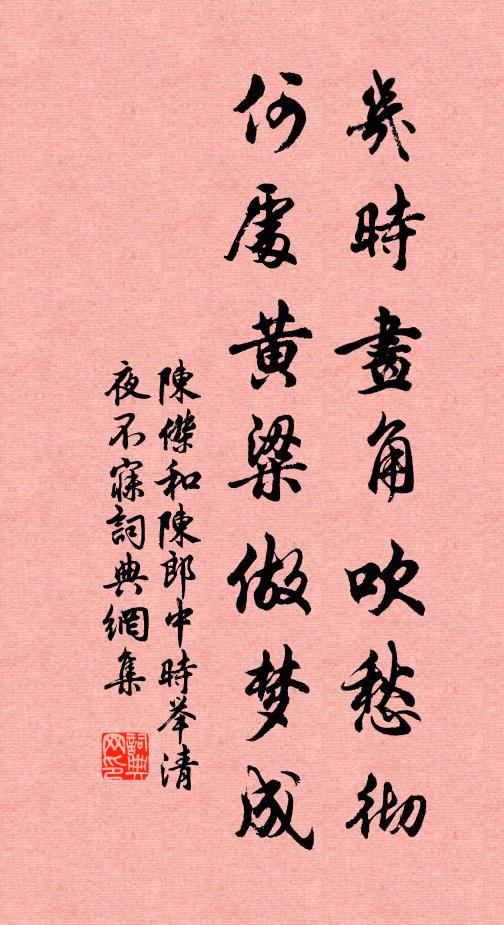 幾時畫角吹愁彻
何處黄粱做梦成
陳傑和陳郎中時举清
夜不寐詞典網集
詞典
网印